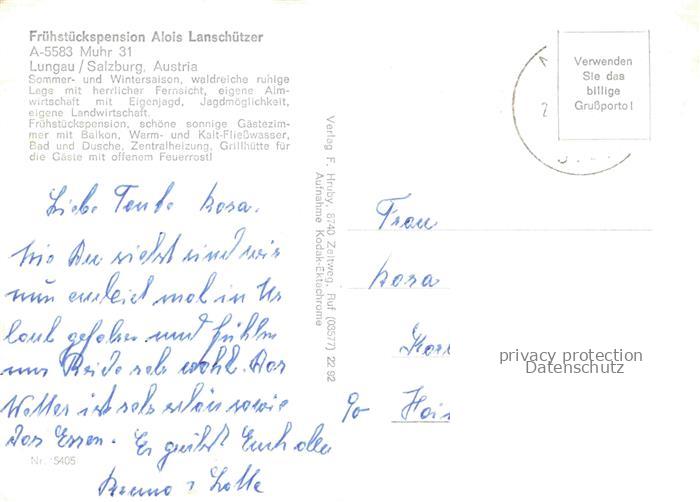 Frühstückspension Alois Lanschützer
A-5583 Muhr 31
Lungau/Salzburg, Austria
Sommer- und Wintersaison, waldreiche ruhige
Lage mit herrlicher Fernsicht, eigene Alm-
wirtschaft mit Eigenjagd, Jagdmöglichkeit,
eigene Landwirtschaft.
Frühstückspension, schöne sonnige Gästezim-
mer mit Balkon, Warm- und Kalt-Fließwasser,
Bad und Dusche, Zentralheizung, Grillhütte für
die Gäste mit offenem Feuerrost!
Verwenden
Sie das
billige
Grußporto!
Verlag F. Hruby, 8740 Zeltweg, Ruf (03577) 22 92
Aufnahme Kodak-Ektachrome
Liebe Tante Rosa.
Wie Du siehst sind wir
nun mal in Ur
laub gefahren und fühlen
uns Beide sehr wohl. Das
Wetter ist sehr schön sowie
das Essen. Es grüßt Euch alle
Benno & Lotte
Nr. 5405
Frau
Rosa
privacy protection
Datenschutz